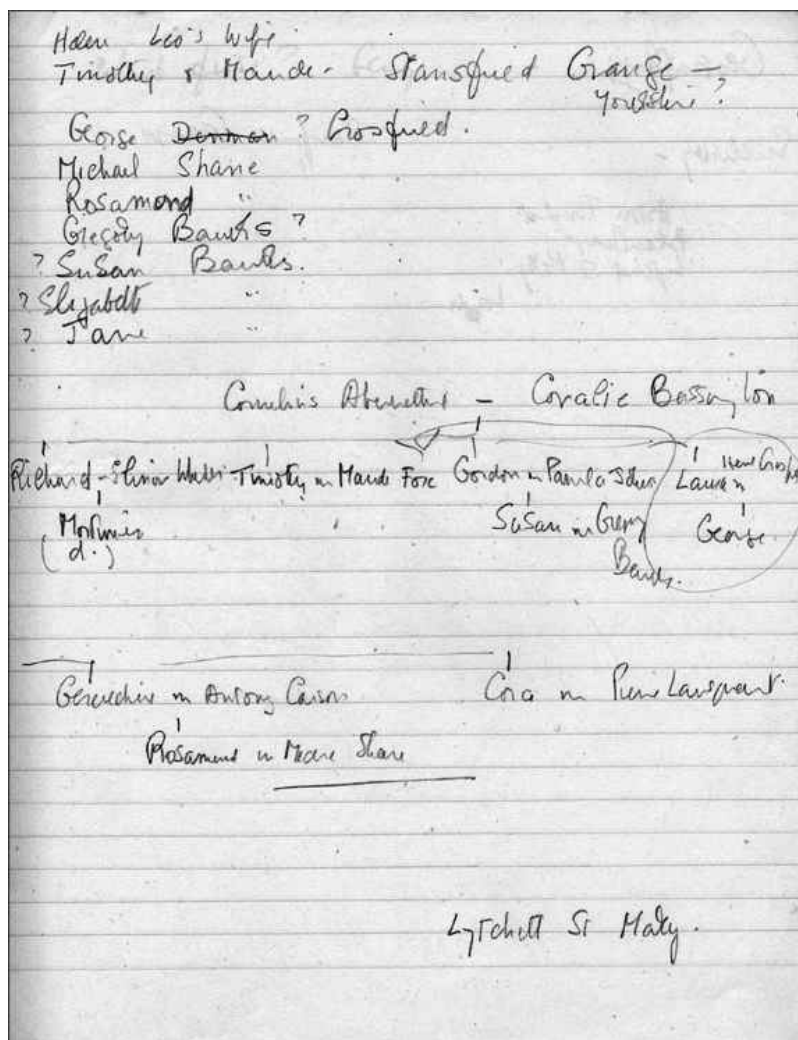 Helen Leo's Wife
Timothy & Maude - Stansfield Grange -
Yorkshire?
George Denman ? Crosfield.
Michael Shane
Rosamond "
Gregory Banks ?
? Susan Banks.
? Elizabeth "
? Jane "
Cornelius Abernethie - Coralie Bassington
Richard - Timothy m Maude Gordon m Pamela Laura m
Mortimer Susan m Greg George.
(d.) Banks.
Geraldine m Antony Carson Cora m Pierre Lansquenet.
Rosamund m Shane
Lytchett St Mary.